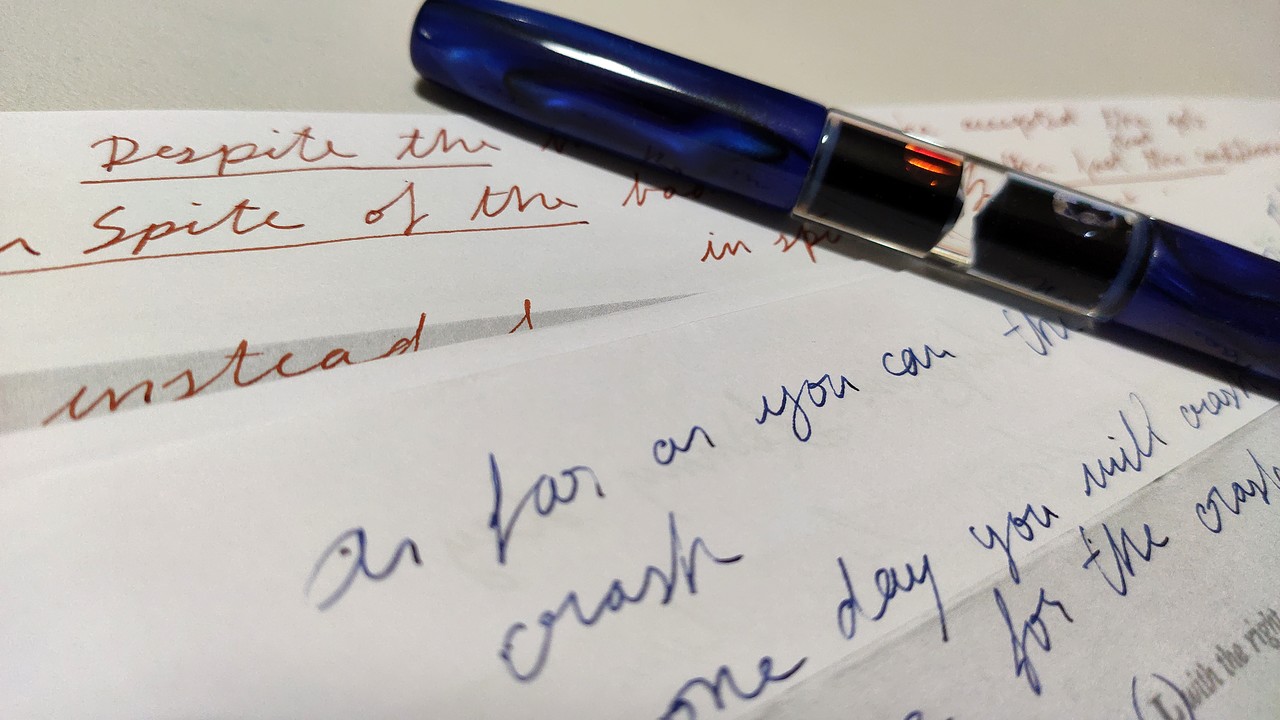 Despite the
n Spite of the bad
in spi
instead
accepted the
as far as you can the
crash
one day you will crash
for the crash
with the right